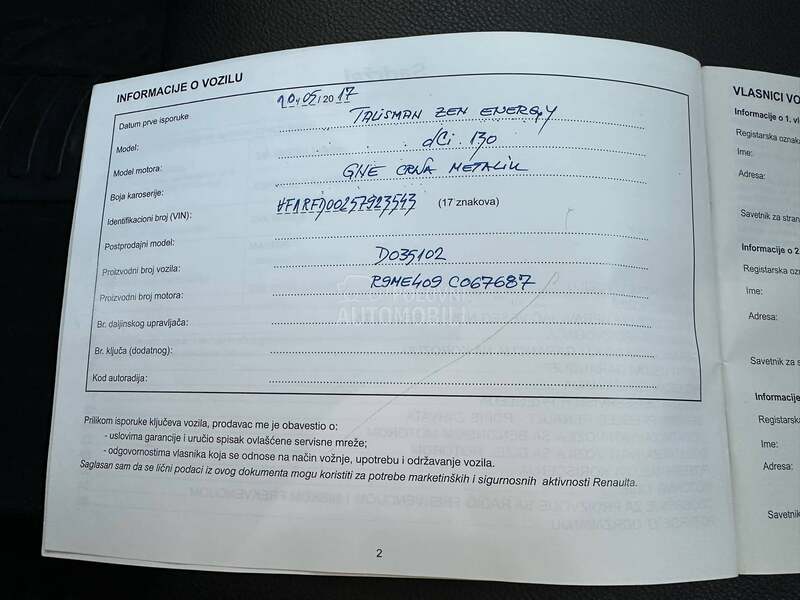 INFORMACIJE O VOZILU
Datum prve isporuke 20/05/2017
Model: TALISMAN ZEN ENERGY
Model motora: dCi 130
Boja karoserije: GNE CRNA METALIK
Identifikacioni broj (VIN): VF1RFD00257923543 (17 znakova)
Postprodajni model:
Proizvodni broj vozila: D035102
Proizvodni broj motora: R9ME409 C067687
Br. daljinskog upravljača:
Br. ključa (dodatnog):
Kod autoradija:
AUTOMOBILI
Prilikom isporuke ključeva vozila, prodavac me je obavestio o:
- uslovima garancije i uručio spisak ovlašćene servisne mreže;
- odgovornostima vlasnika koja se odnose na način vožnje, upotrebu i održavanje vozila.
Saglasan sam da se lični podaci iz ovog dokumenta mogu koristiti za potrebe marketinških i sigurnosnih aktivnosti Renaulta.
2
VLASNICI VO
Informacije o 1. vl
Registarska oznaka
Ime:
Adresa:
Savetnik za stran
Informacije o 2.
Registarska ozna
Ime:
Adresa:
Savetnik za s
Informacije
Registarska
Ime:
Adresa:
Savetnik